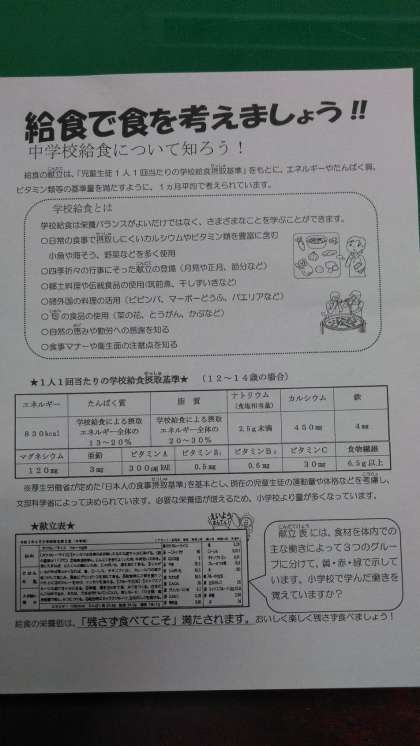 給食で食を考えましょう!!
中学校給食について知ろう!
給食の献立は、「児童生徒1人1回当たりの学校給食摂取基準」をもとに、エネルギーやたんぱく質、
ビタミン類等の基準量を満たすように、1ヵ月平均で考えられています。
学校給食とは
学校給食は栄養バランスがよいだけではなく、さまざまなことを学ぶことができます。
○日常の食事で摂取しにくいカルシウムやビタミン類を豊富に含む
小魚や海そう、野菜などを多く使用
○四季折々の行事にそった献立の登場(月見や正月、節分など)
○郷土料理や伝統食品の使用(筑前煮、干しずいきなど)
○諸外国の料理の活用(ビビンバ、マーボーどうふ、パエリアなど)
○旬の食品の使用(菜の花、とうがん、かぶなど)
○自然の恵みや勤労への感謝を知る
○食事マナーや衛生面の注意点を知る
★1人1回当たりの学校給食摂取基準★ (12~14歳の場合)
エネルギー たんぱく質 脂質 ナトリウム(食塩相当量) カルシウム 鉄
830kcal 学校給食による摂取エネルギー全体の13~20% 学校給食による摂取エネルギー全体の20~30% 2.5g未満 450mg 4mg
マグネシウム 亜鉛 ビタミンA ビタミンB₁ ビタミンB₂ ビタミンC 食物繊維
120mg 3mg 300μgRAE 0.5mg 0.6mg 30mg 6.5g以上
※厚生労働省が定めた「日本人の食事摂取基準」を基本とし、現在の児童生徒の運動量や体格などを考慮し、
文部科学省によって決められています。必要な栄養価が増えるため、小学校より量が多くなっています。
★献立表★
献立表には、食材を体内での
主な働きによって3つのグルー
プに分けて、黄・赤・緑で示して
います。小学校で学んだ働きを
覚えていますか?
給食の栄養価は、「残さず食べてこそ」満たされます。おいしく楽しく残さず食べましょう!